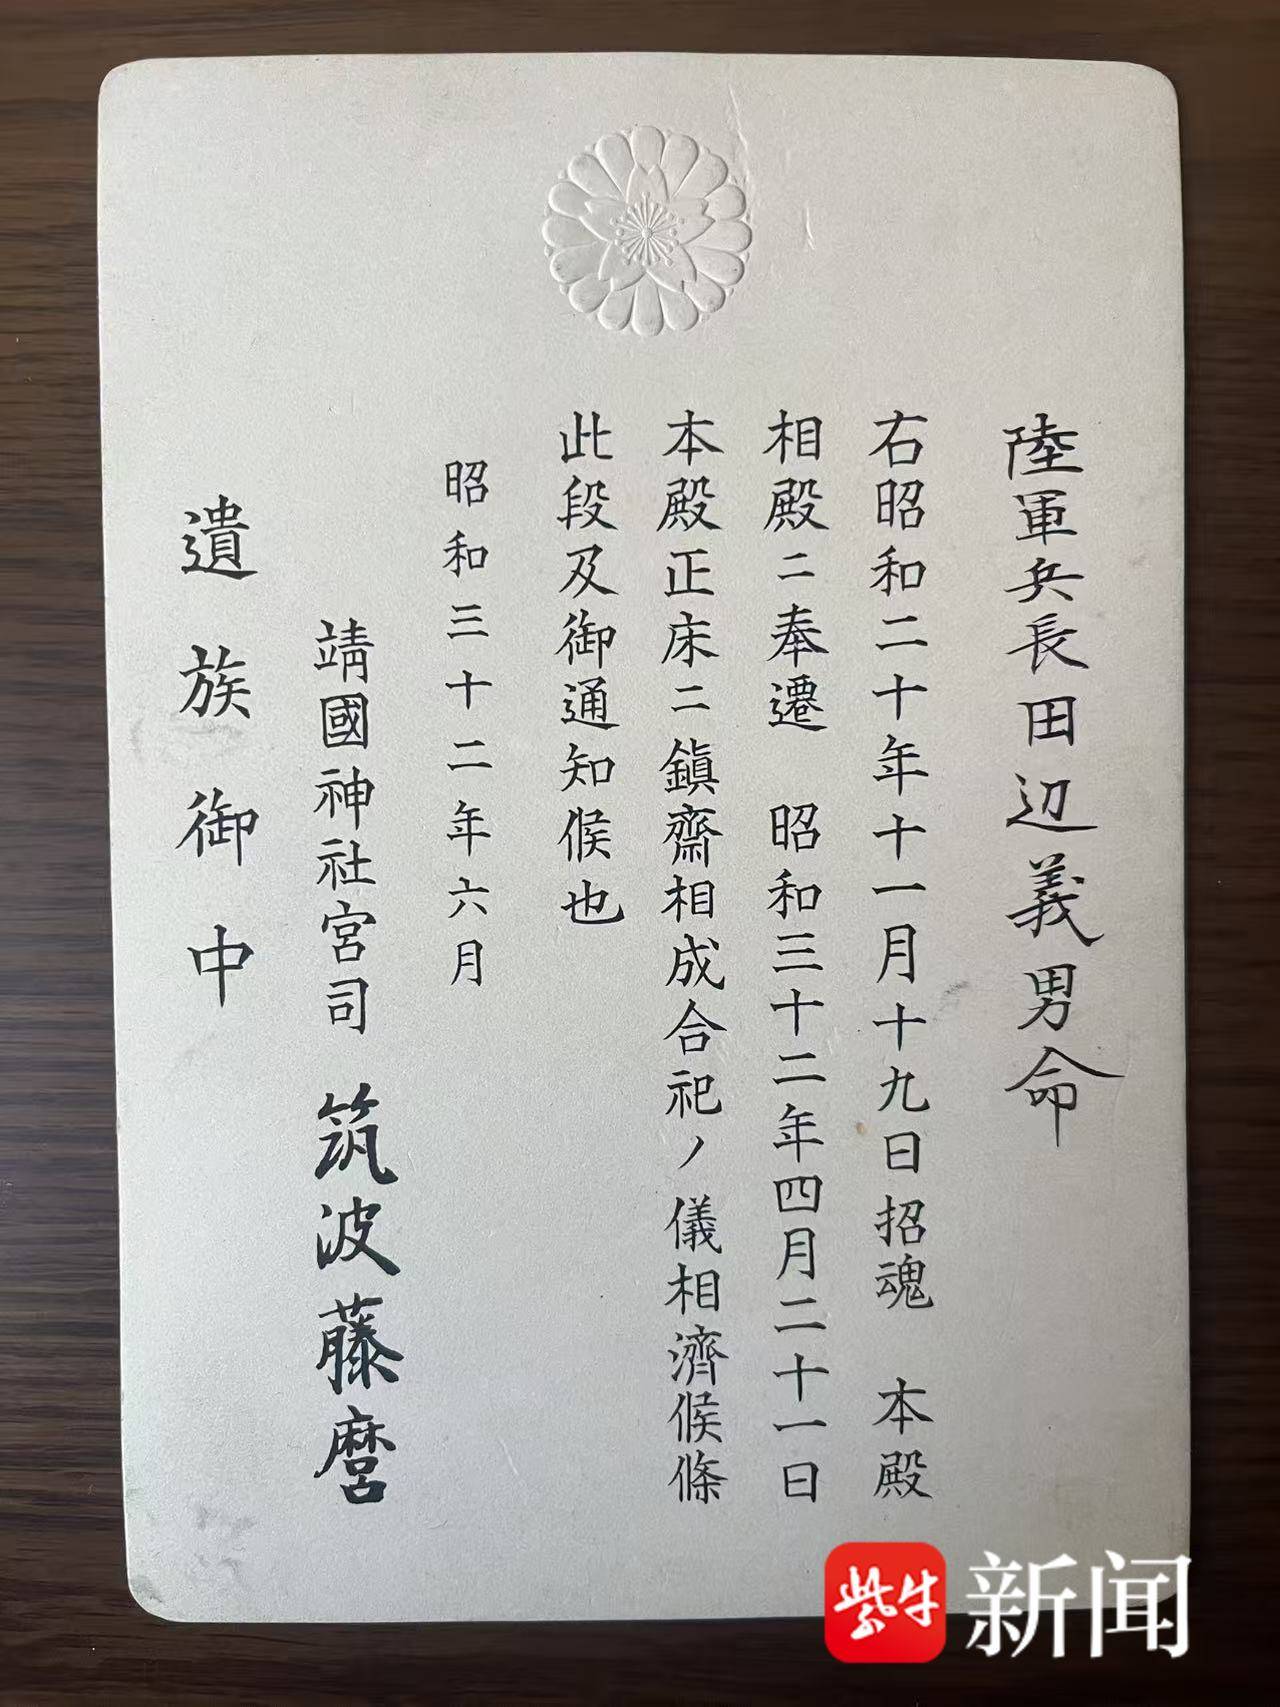 陸軍兵長田辺義男命
右昭和二十年十一月十九日招魂　本殿
相殿ニ奉遷　昭和三十二年四月二十一日
本殿正床ニ鎮齋相成合祀ノ儀相濟候條
此段及御通知候也
昭和三十二年六月
靖國神社宮司　筑波藤麿
遺族御中
紫牛新闻